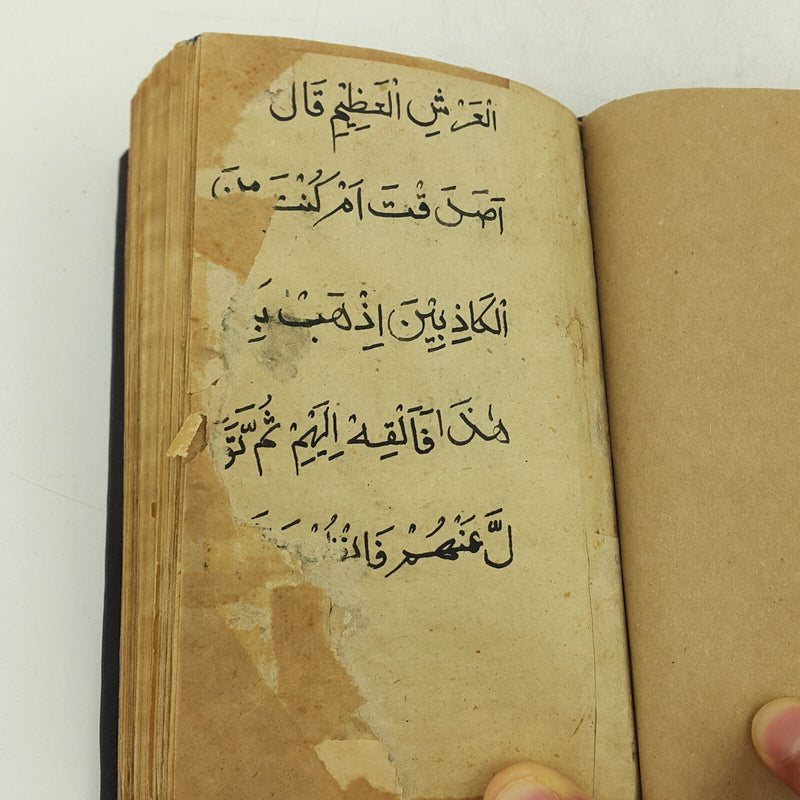 الْعَرْشِ الْعَظِيْمِ قَالَ
اَصَدَ قْتَ اَمْ كُنْتَ مِنَ
الْكَاذِبِيْنَ اِذْهَبْ بِ
هٰذَا فَاَلْقِهْ اِلَيْهِمْ ثُمَّ تَوَ
لَّ عَنْهُمْ فَانْظُرْ